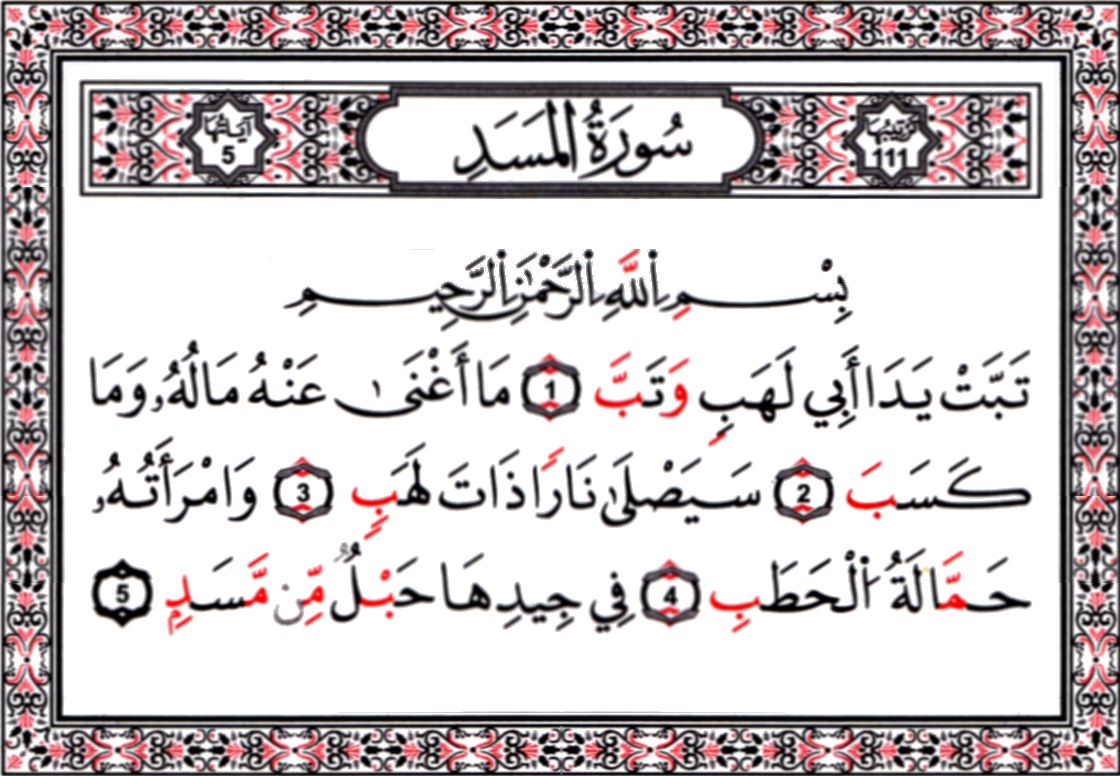 ترتيبها 111 سُورَةُ المَسَدِ آياتها 5
بِسْمِ ٱللَّهِ ٱلرَّحْمَٰنِ ٱلرَّحِيمِ
تَبَّتْ يَدَا أَبِي لَهَبٍ وَتَبَّ 1 مَا أَغْنَىٰ عَنْهُ مَالُهُۥ وَمَا
كَسَبَ 2 سَيَصْلَىٰ نَارًا ذَاتَ لَهَبٍ 3 وَامْرَأَتُهُۥ
حَمَّالَةُ ٱلْحَطَبِ 4 فِي جِيدِهَا حَبْلٌ مِّن مَّسَدٍ 5